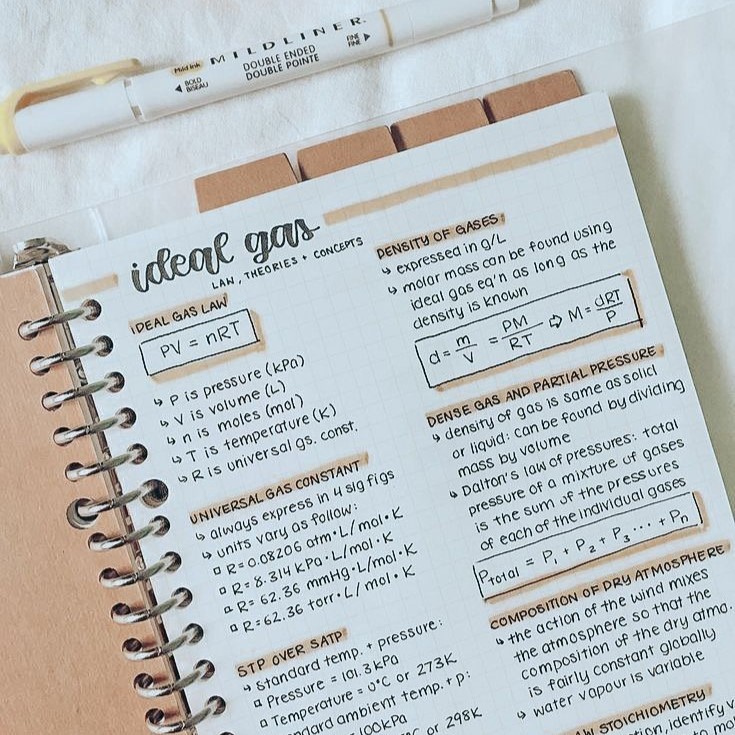 MILDLINER
Mild ink
DOUBLE ENDED
DOUBLE POINTE
BOLD
BISEAU
FINE
FINE
ideal gas
LAW, THEORIES + CONCEPTS
IDEAL GAS LAW
PV = nRT
↳ P is pressure (kPa)
↳ V is volume (L)
↳ n is moles (mol)
↳ T is temperature (K)
↳ R is universal gs. const.
UNIVERSAL GAS CONSTANT
↳ always express in 4 sig figs
↳ units vary as follow:
R = 0.08206 atm·L/mol·K
R = 8.314 kPa·L/mol·K
R = 62.36 mmHg·L/mol·K
R = 62.36 torr·L/mol·K
STP OVER SATP
↳ standard temp. + pressure:
Pressure = 101.3 kPa
Temperature = 0°C or 273K
standard ambient temp. + p:
100kPa
°C or 298K
DENSITY OF GASES:
↳ expressed in g/L
↳ molar mass can be found using
ideal gas eq'n as long as the
density is known
d = m/V = PM/RT ⇨ M = dRT/P
DENSE GAS AND PARTIAL PRESSURE
↳ density of gas is same as solid
or liquid: can be found by dividing
mass by volume
↳ Dalton's law of pressures: total
pressure of a mixture of gases
is the sum of the pressures
of each of the individual gases
Ptotal = P1 + P2 + P3 ... + Pn
COMPOSITION OF DRY ATMOSPHERE
↳ the action of the wind mixes
the atmosphere so that the
composition of the dry atmo.
is fairly constant globally
↳ water vapour is variable
STOICHIOMETRY
identify